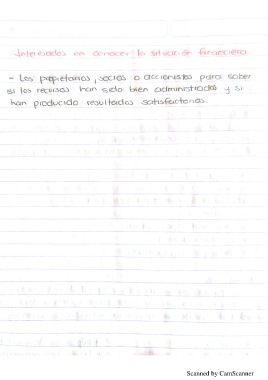 Interesados en conocer la situación financiera
- Los propietarios, socios o accionistas para saber
si los recursos han sido bien administrados y si
han producido resultados satisfactorios.
Scanned by CamScanner